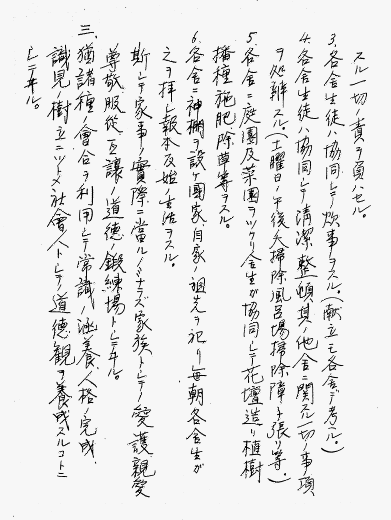 スル一切ノ責ヲ負ハセル。
3.各舎生徒ハ協同シテ炊事ヲスル。(献立モ各舎デ考ヘル。)
4.各舎生徒ハ協同シテ清潔整頓其ノ他舎ニ関スル一切ノ事項
ヲ処辨スル。(土曜日ノ午後大掃除風呂場掃除障子張リ等。)
5.各舎ニ庭園及菜園ヲツクリ舎生ガ協同シテ花壇造リ植樹
播種施肥除草等ヲスル。
6.各舎ニ神棚ヲ設ケ國家、自家ノ祖先ヲ祀リ毎朝各舎生ガ
之ヲ拝シ報本反始ノ生活ヲスル。
斯シテ家事ノ実際ニ當ルノミナラズ家族トシテノ愛護親愛
尊敬服従互譲ノ道徳鍛練場トシテヰル。
三、猶諸種ノ會合ヲ利用シテ常識ノ涵養人格ノ完成、
識見樹立ニツトメ社會人トシテノ道徳観ヲ養成スルコトニ
シテヰル。